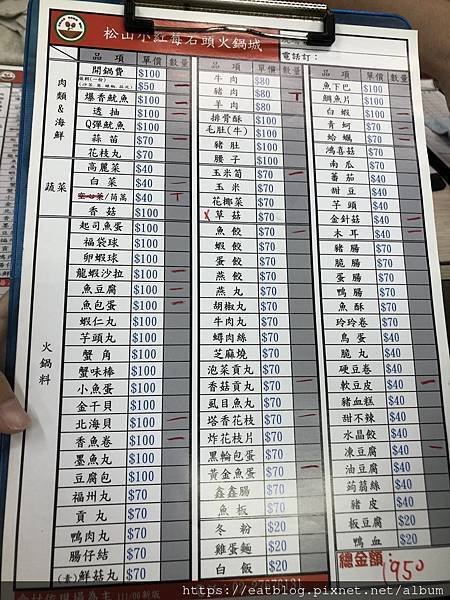 松山小紅莓石頭火鍋城
電話訂：
品項 單價 數量
肉類&海鮮
開鍋費 $100
$50
爆香魷魚 $100
透抽 $100
Q彈魷魚 $100
蒜苗 $70
花枝丸 $70
蔬菜
高麗菜 $40
白菜 $40
空心菜/茼萵 $40
香菇 $70
火鍋料
起司魚蛋 $100
福袋球 $100
卵蝦球 $100
龍蝦沙拉 $100
魚豆腐 $100
魚包蛋 $100
蝦仁丸 $100
芋頭丸 $100
蟹角 $100
蟹味棒 $100
小魚蛋 $100
金干貝 $100
北海貝 $100
香魚卷 $100
墨魚丸 $100
豆腐包 $100
福州丸 $70
貢丸 $70
鴨肉丸 $70
腸仔結 $70
(素)鮮菇丸 $70
品項 單價 數量
牛肉 $80
豬肉 $80
羊肉 $80
排骨酥 $100
毛肚(牛) $100
豬肚 $100
腰子 $100
玉米筍 $70
玉米 $70
花椰菜 $70
X 草菇 $70
魚餃 $70
蝦餃 $70
蛋餃 $70
燕餃 $70
燕丸 $70
胡椒丸 $70
牛肉丸 $70
蟳肉絲 $70
芝麻燒 $70
泡菜貢丸 $70
香菇貢丸 $70
虱目魚丸 $70
塔香花枝 $70
炸花枝片 $70
黑輪包蛋 $70
黃金魚蛋 $70
鑫鑫腸 $70
魚板 $70
冬粉 $20
雞蛋麵 $20
白飯 $20
品項 單價 數量
魚下巴 $100
鯛魚片 $100
白蝦 $100
青蚵 $70
蛤蠣 $70
鴻喜菇 $70
南瓜 $70
蕃茄 $40
甜豆 $40
芋頭 $40
金針菇 $40
木耳 $40
豬腸 $70
脆腸 $70
蛋腸 $70
鴨腸 $70
魚酥 $70
玲玲卷 $70
鳥蛋 $40
脆丸 $40
硬豆卷 $40
軟豆皮 $40
豬血糕 $40
甜不辣 $40
水晶餃 $40
凍豆腐 $40
油豆腐 $40
蒟蒻絲 $40
豬皮 $40
板豆腐 $20
鴨血 $20
總金額 1950
111/06新版
https://eatblog.pixnet.net/album